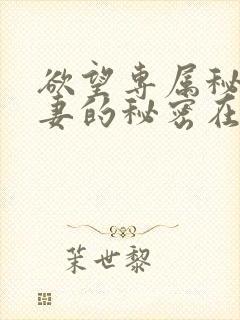 欲望专属秘
妻的秘密在
茉世黎